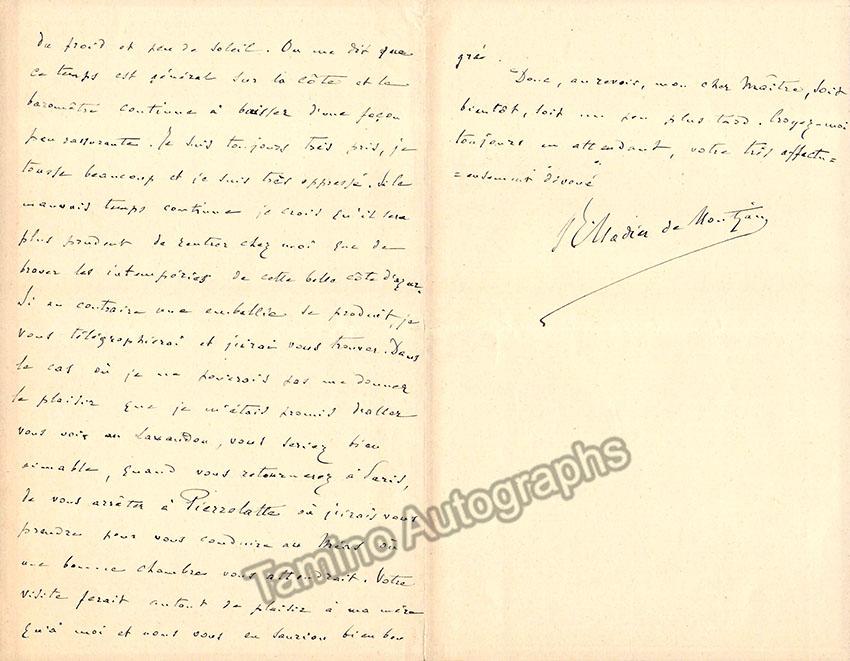 du froid et peu de soleil. On me dit que
ce temps est général sur la côte et le
baromètre continue à baisser d'une façon
peu rassurante. Je suis toujours très pris, je
tousse beaucoup et je suis très oppressé. Si le
mauvais temps continue je crois qu'il sera
plus prudent de rentrer chez moi que de
braver les intempéries de cette belle côte d'azur.
Si au contraire une embellie se produit, je
vous télégraphierai et j'irai vous trouver. Dans
le cas où je ne pourrais pas me donner
le plaisir que je m'étais promis d'aller
vous voir au Lavandou, vous seriez bien
aimable, quand vous retournerez à Paris,
de vous arrêter à Pierrelatte où j'irais vous
prendre pour vous conduire au où
une bonne chambre vous attendrait. Votre
visite ferait autant de plaisir à ma mère
qu'à moi et nous vous en saurions bien bon
gré.
Donc, au revoir, mon cher Maître, soit
bientôt, soit un peu plus tard. Croyez-moi
toujours en attendant, votre très affectu=
=eusement dévoué
Madier de Montjau
Tamino Autographs